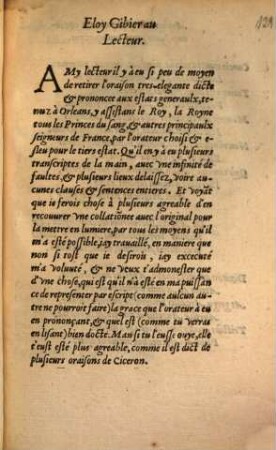 Eloy Gibier au
Lecteur.
AMy lecteur il y à eu si peu de moyen
de retirer l'oraison tres-elegante dicte
& prononcee aux estats generaulx, te-
nuz à Orleans, y assistans le Roy, la Royne
tous les Princes du sang, & autres principaulx
seigneurs de France, par l'orateur choisi & e-
sleu pour le tiers est. Qu'il en y à eu plusieurs
transcriptes de la main, auec vne infinité de
faultes, & plusieurs lieux delaissez, voire au-
cunes clauses & sentences entieres. Et voyāt
que ie ferois chose à plusieurs agreable d'en
recouurer vne collationee auec l'original pour
la mettre en lumiere, par tous les moyens qu'il
m'a esté possible, iay trauaillé, en maniere que
non si tost que ie desirois, iay excecuté
m'a volunté, & ne veux t'admonester que
d'vne chose, qui est qu'il n'à esté en ma puissan
ce de representer par escript (comme aulcun au-
tre ne pourroit faire) la grace que l'orateur à eu
en prononçant, & quel est (comme tu verras
en lisant) bien docte. Mau si tu l'eusse ouye, elle
t'eust esté plus agreable, comme il est dict de
plusieurs oraisons de Ciceron.